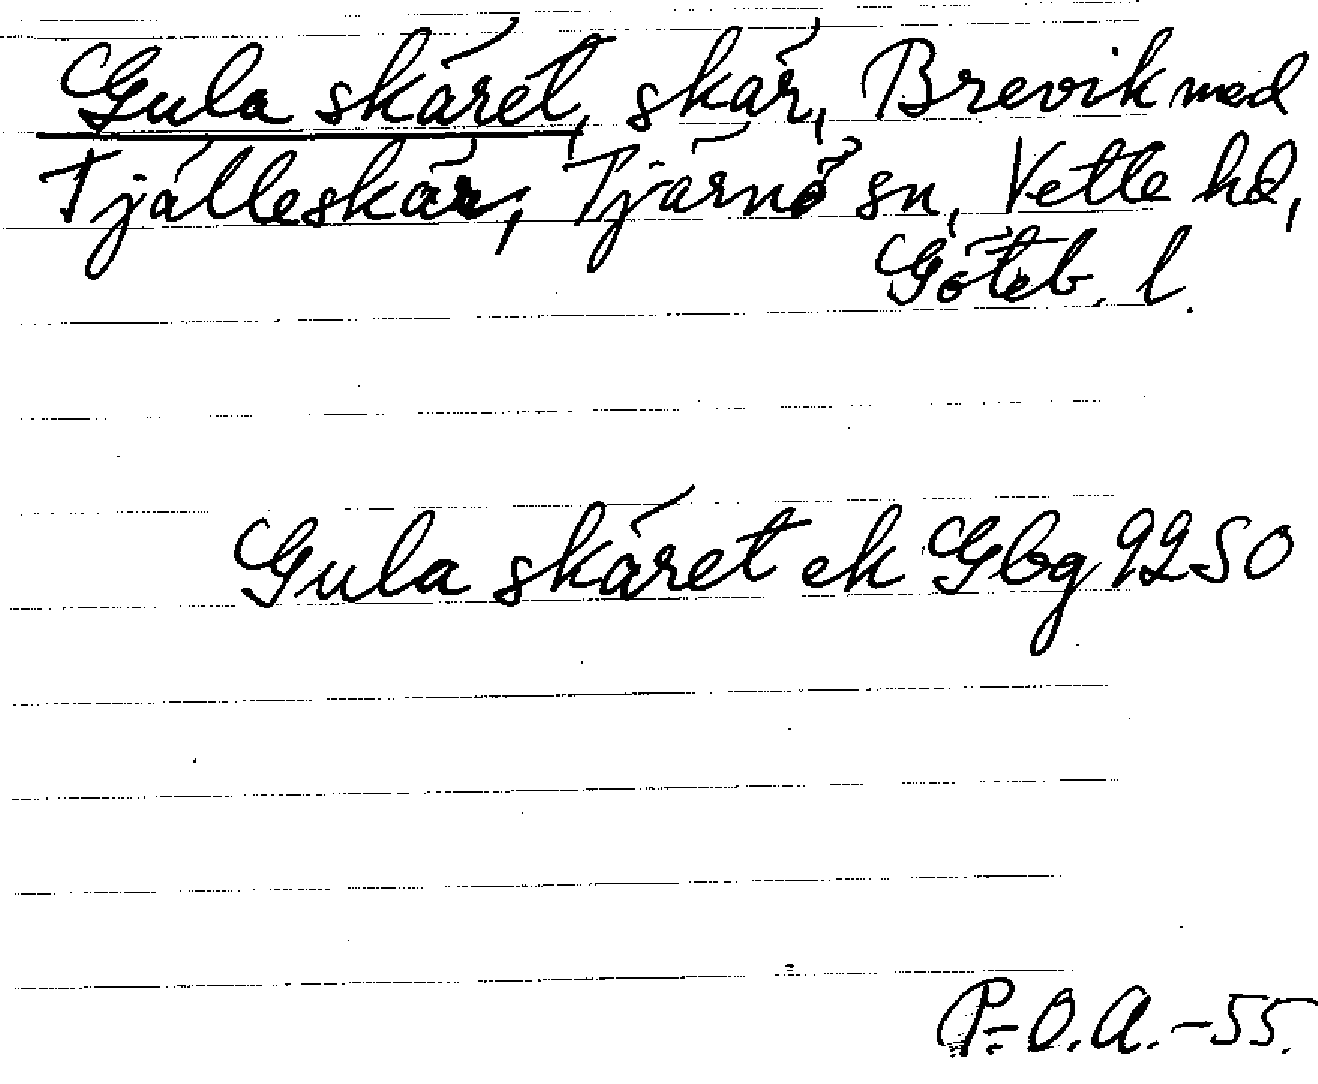 Gula skäret, skär, Brevik med
Tjälleskär, Tjärnö sn, Vette hd,
Göteb. l.
Gula skäret ek Gbg 9250
P-O.A. -55.